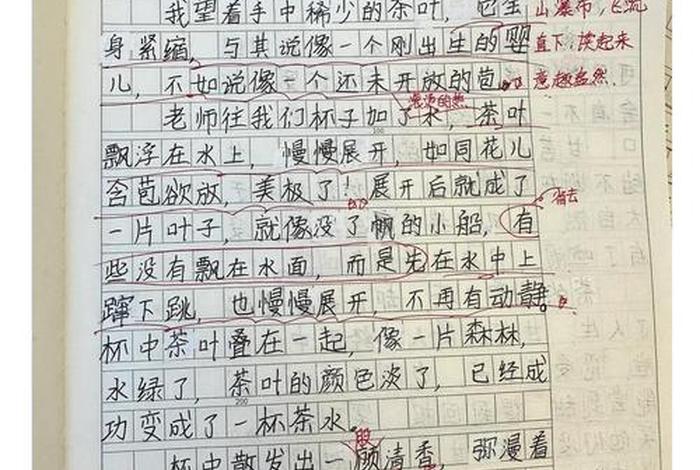 我望着手中稀少的茶叶，它全
身紧缩，与其说像一个刚出生的婴
儿，不如说像一个还未开放的苞。
老师往我们杯子加了水，茶叶
飘浮在水上，慢慢展开，如同花儿
含苞欲放，美极了！展开后就成了
一片叶子，就像没了帆的小船，有
些没有飘在水面，而是先在水中上
蹿下跳，也慢慢展开，不再有动静。
杯中茶叶叠在一起，像一片森林，
水绿了，茶叶的颜色淡了，已经成
功变成了一杯茶水。
200
杯中散发出一股清香，弥漫着
山瀑布，飞流
直下，读起来
意趣盎然．
滚烫的热
省去
股
100